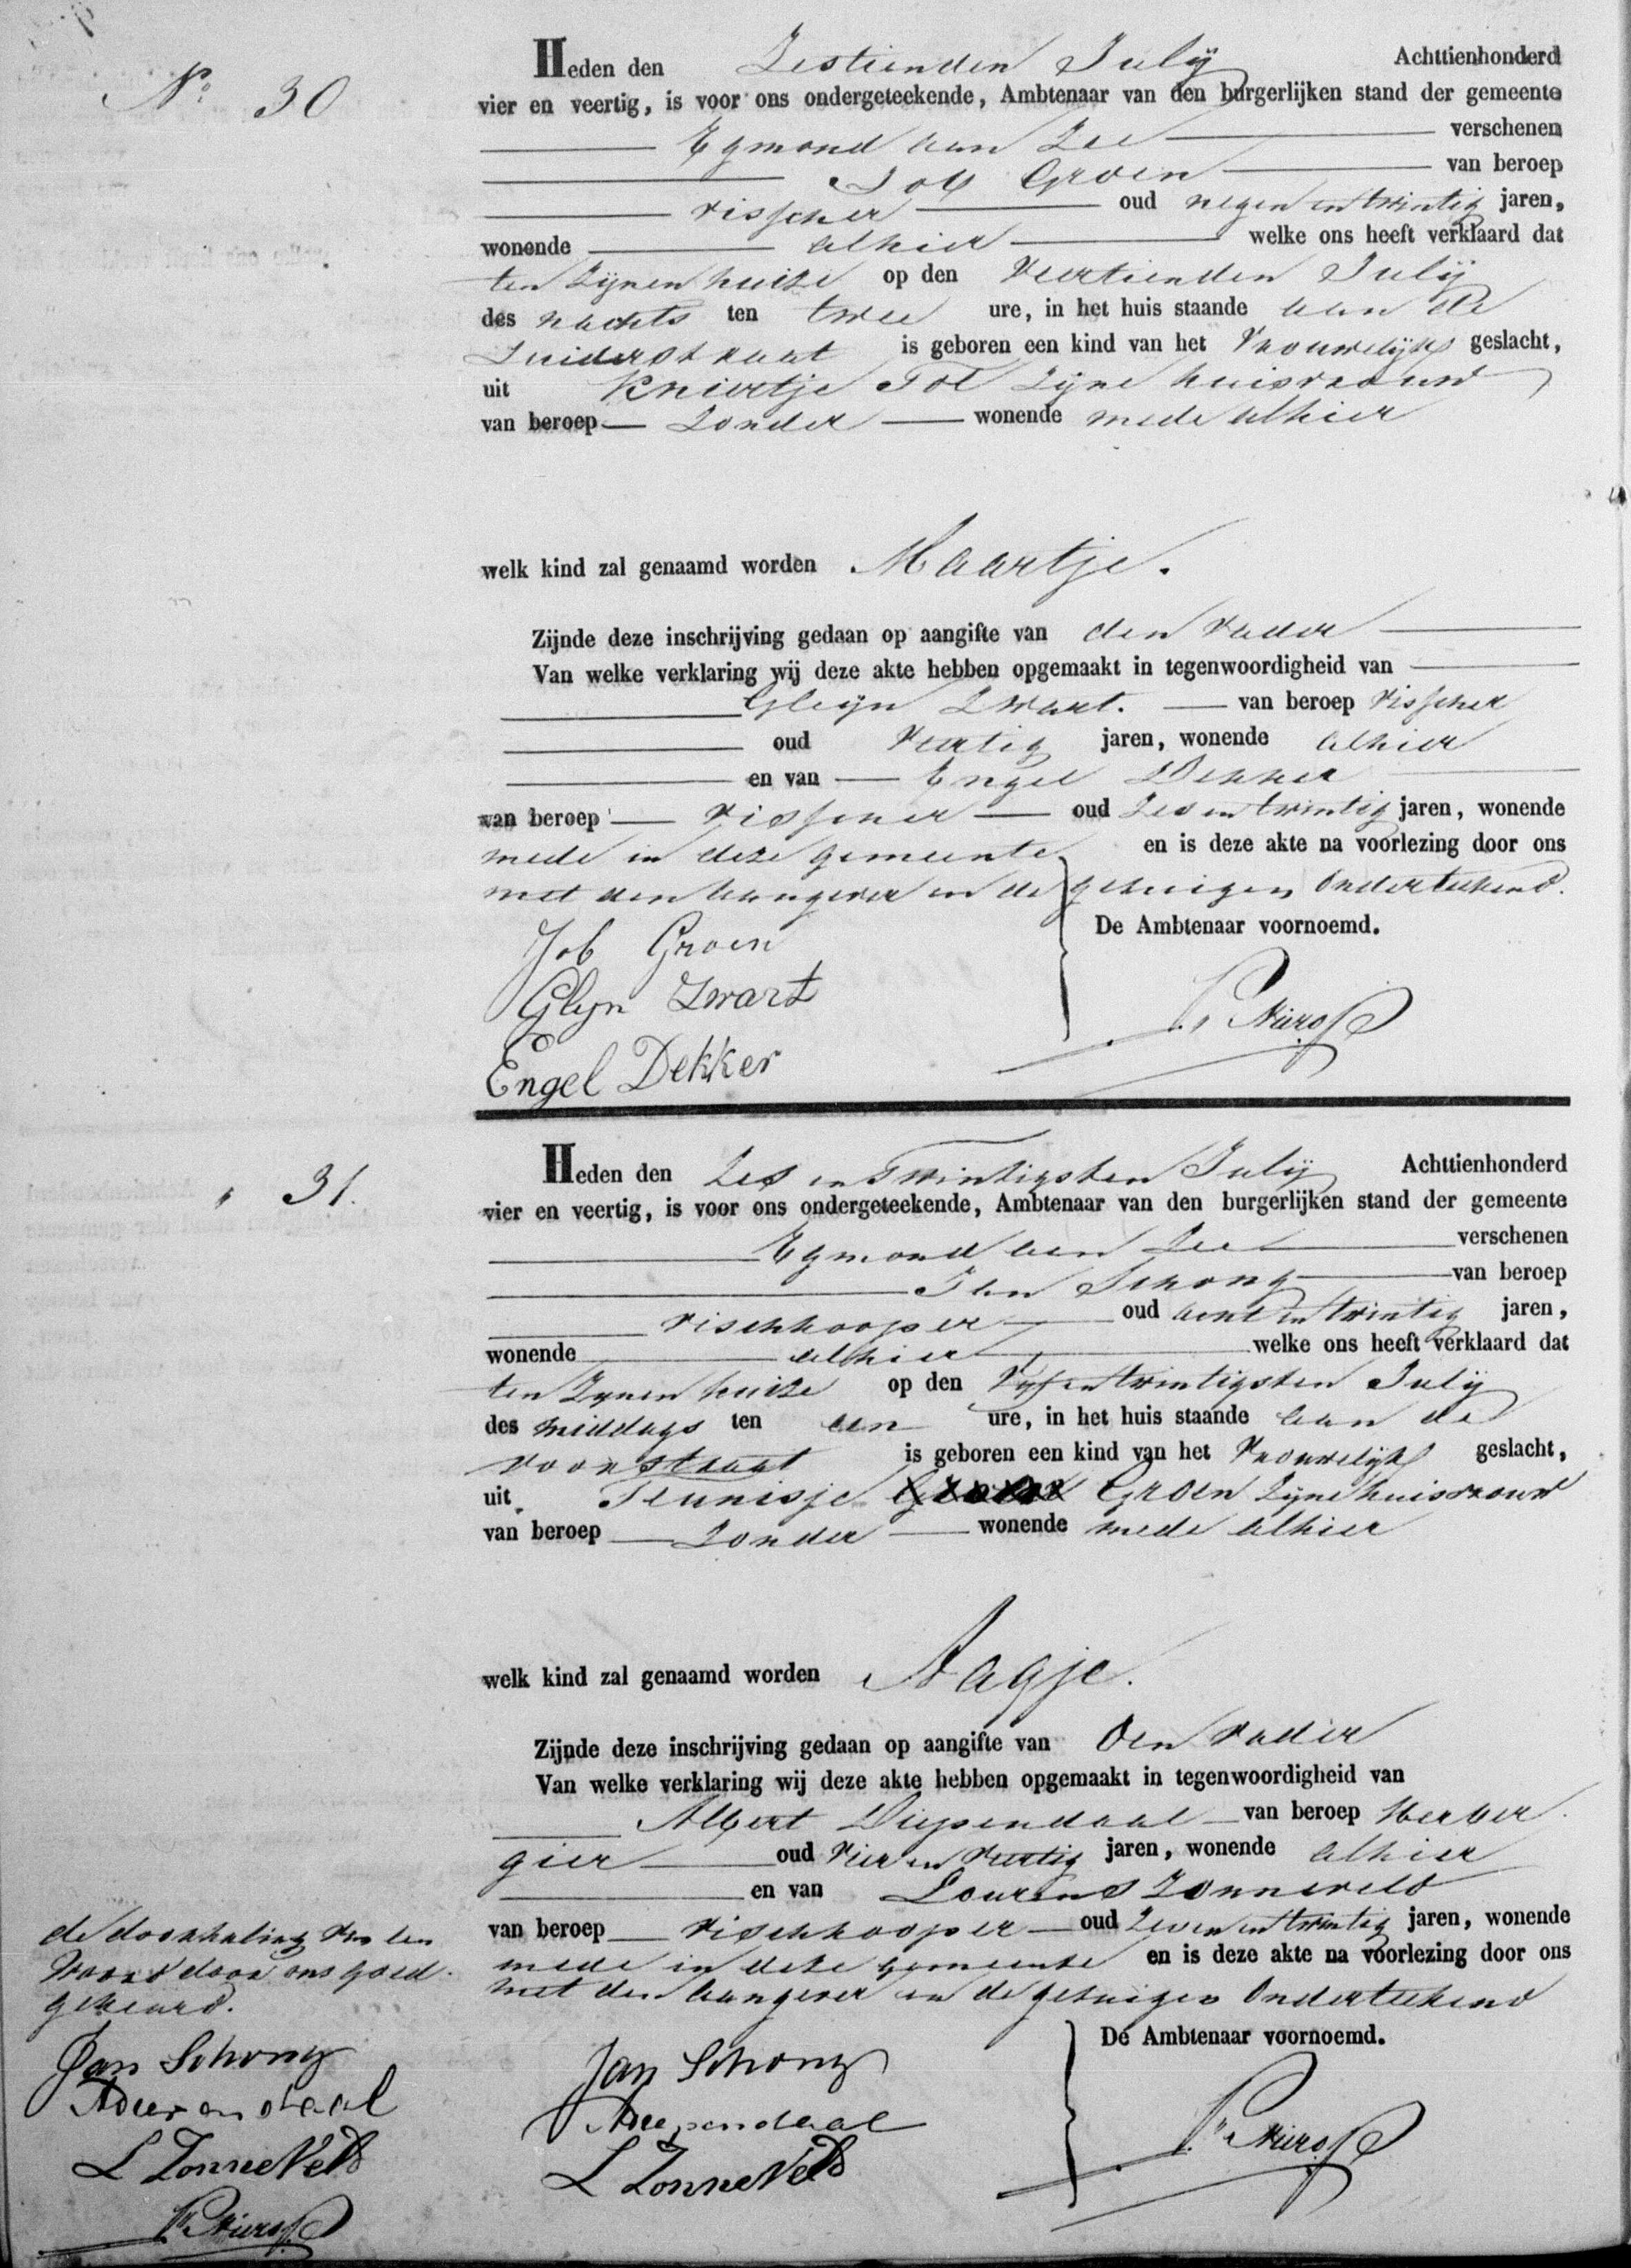 No. 30
Heden den Zestienden July Achttienhonderd
vier en veertig, is voor ons ondergeteekende, Ambtenaar van den burgerlijken stand der gemeente
Egmond aan Zee verschenen
Job Groen van beroep
visscher oud negen en twintig jaren,
wonende alhier welke ons heeft verklaard dat
ten zijnen huize op den veertienden July
des nachts ten twee ure, in het huis staande aan de
Zuiderstraat is geboren een kind van het Vrouwelijk geslacht,
uit Kniertje Tol zijne huisvrouw
van beroep zonder wonende mede alhier
welk kind zal genaamd worden Maartje.
Zijnde deze inschrijving gedaan op aangifte van den vader
Van welke verklaring wij deze akte hebben opgemaakt in tegenwoordigheid van
Gleijn Zwart. van beroep visscher
oud veertig jaren, wonende alhier
en van Engel Dekker
van beroep visscher oud zes en twintig jaren, wonende
mede in deze gemeente en is deze akte na voorlezing door ons
met den aangever en de getuigen Onderteekend.
De Ambtenaar voornoemd.
Job Groen
Glyn Zwart
Engel Dekker
31.
Heden den Zes en Twintigsten July Achttienhonderd
vier en veertig, is voor ons ondergeteekende, Ambtenaar van den burgerlijken stand der gemeente
Egmond aan Zee verschenen
Jan Schong van beroep
vischkooper oud acht en twintig jaren,
wonende alhier welke ons heeft verklaard dat
ten zijnen huize op den Vijf en twintigsten July
des middags ten een ure, in het huis staande aan de
voorstraat is geboren een kind van het Vrouwelijk geslacht,
uit Teunisje Groen zijne huisvrouw
van beroep zonder wonende mede alhier
welk kind zal genaamd worden Aagje.
Zijnde deze inschrijving gedaan op aangifte van Den vader
Van welke verklaring wij deze akte hebben opgemaakt in tegenwoordigheid van
Albert Diependaal van beroep Herber
gier oud vier en veertig jaren, wonende alhier
en van Lourens Zonneveld
van beroep vischkooper oud zeven en twintig jaren, wonende
mede in deze gemeente en is deze akte na voorlezing door ons
met den aangever en de getuigen Onderteekend
De Ambtenaar voornoemd.
Jan Schong
ADiependaal
L Zonneveld
de doorhaling van een
Woord door ons goed
gekeurd.
Jan Schong
ADiependaal
L Zonneveld